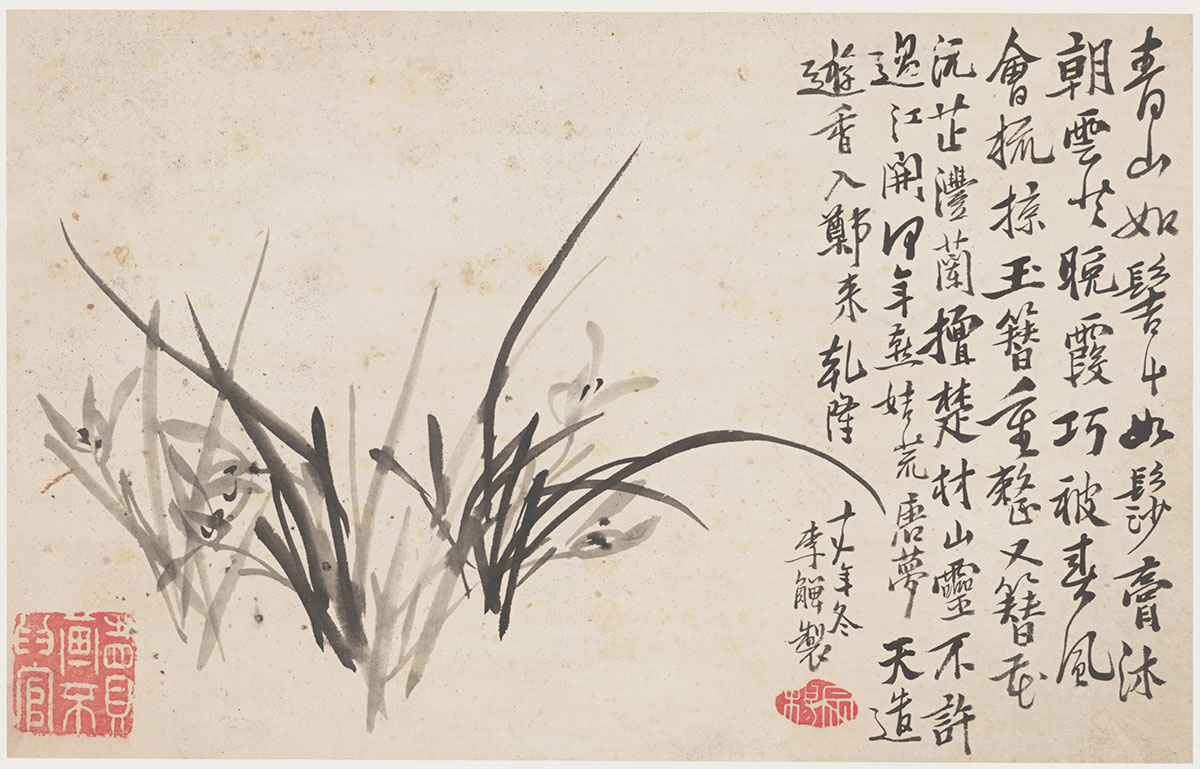 青山如髻屮如髿膏沐
朝雲共晚霞巧被春風
會梳掠玉簪重整又簪花
沅芷灃蘭擅楚材山靈不許
過江開何年燕姞荒唐夢天遣
遊香入鄭來乾隆
年冬
李觶製